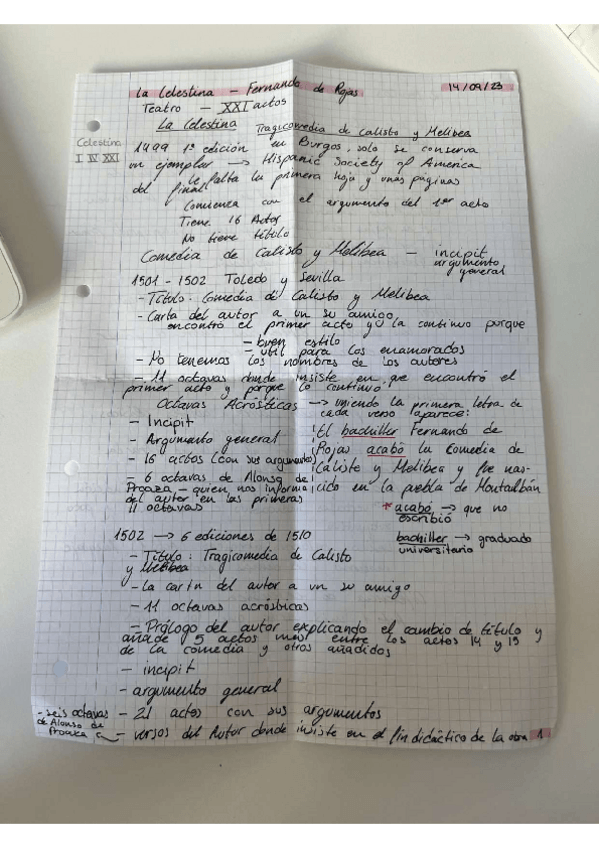 La Celestina - Fernando de Rojas 14/09/23
Teatro - XXI actos
La Celestina Tragicomedia de Calisto y Melibea
Celestina
I IV XXI
1499 1ª edición en Burgos, solo se conserva
un ejemplar → Hispanic Society of America
Le falta la primera hoja y unas páginas
del final.
Comienza con el argumento del 1er acto
Tiene 16 Actos
No tiene título
Comedia de Calisto y Melibea - incipit
argumento
general
1501 - 1502 Toledo y Sevilla
- Título: Comedia de Calisto y Melibea
- Carta del autor a un su amigo
encontró el primer acto y él la continuo porque
- buen estilo
- util para los enamorados
- No tenemos los nombres de los autores
- 11 octavas donde insiste en que encontró el
primer acto y porque lo continuo.
Octavas Acrósticas → uniendo la primera letra de
cada verso aparece:
- Incipit
- Argumento general
- 16 actos (con sus argumentos)
- 6 octavas de Alonso de
Proaza - quien nos informa
del autor en las primeras
11 octavas
El bachiller Fernando de
Rojas acabó la Comedia de
Caliste y Melibea y fue nas-
cido en la puebla de Montalbán
* acabó → que no
escribió
bachiller → graduado
universitario
1502 → 6 ediciones de 1510
- Título: Tragicomedia de Calisto
y Melibea
- La carta del autor a un su amigo
- 11 octavas acrósticas
- Prólogo del autor explicando el cambio de título y
añade 5 actos más entre los actos 14 y 15
de la comedia y otros añadidos
- incipit
- argumento general
- 21 actos con sus argumentos
- seis octavas
de Alonso de
Proaza
- versos del Autor donde insiste en el fin didáctico de la obra 1